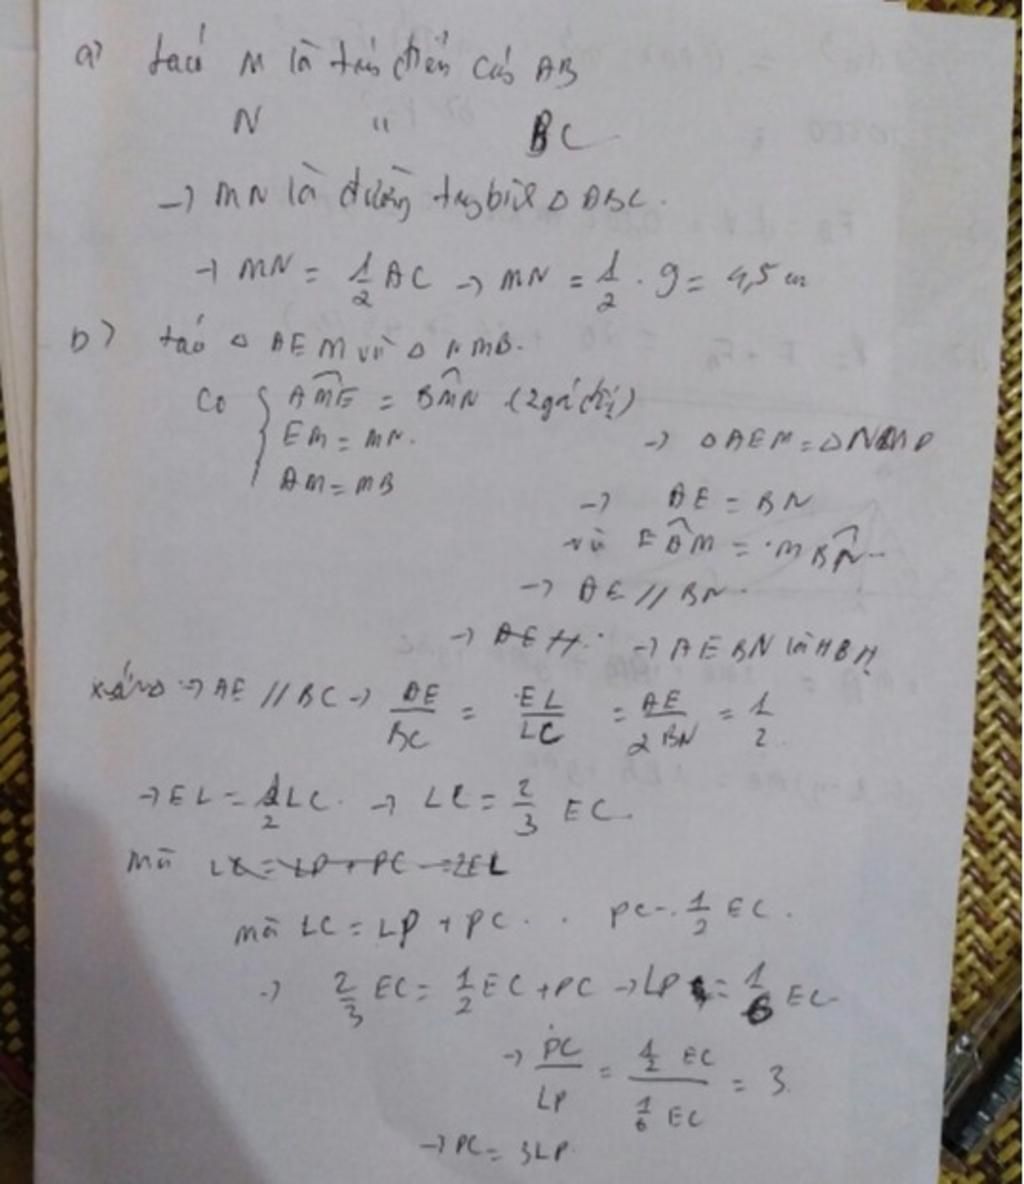 a) ta có M là trung điểm của AB
N " BC
→ MN là đường trung bình △ ABC.
→ MN = 1/2 AC → MN = 1/2 . 9 = 4,5 cm
b) ta có △ AEM và △ NMB.
Có { AME = BMN (2 góc đ đ)
EM = MN.
AM = MB
→ △ AEM = △ NMB
→ AE = BN
và EAM = MBN
→ AE // BN.
→ AE // . → AEBN là HBH
→ AE // BC → AE/BC = EL/LC = AE/2BN = 1/2.
→ EL = 1/2 LC. → LC = 2/3 EC.
mà LC = LP + PC = 2EL
mà LC = LP + PC . . PC = 1/2 EC.
→ 2/3 EC = 1/2 EC + PC → LP = 1/6 EC
→ PC/LP = 1/2 EC / 1/6 EC = 3.
→ PC = 3LP.